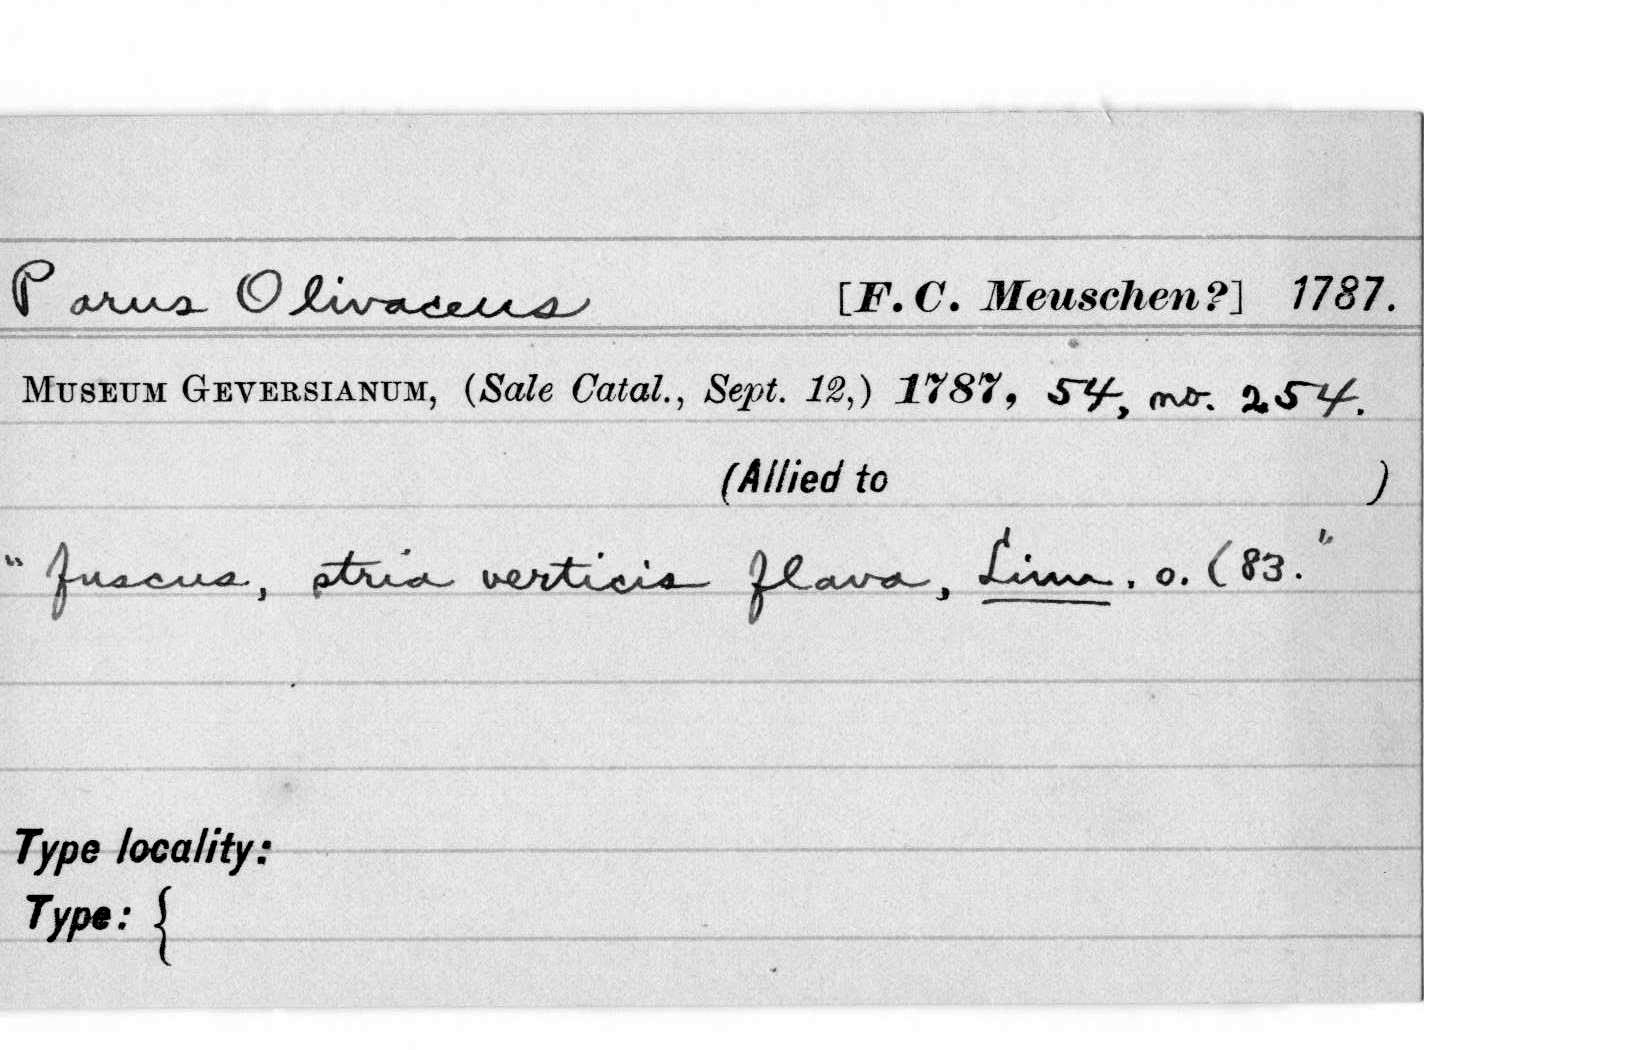 Parus Olivaceus [F. C. Meuschen?] 1787.
MUSEUM GEVERSIANUM, (Sale Catal., Sept. 12,) 1787, 54, no. 254.
(Allied to )
"fuscus, stria verticis flava, Linn. o. (83."
Type locality:
Type: {